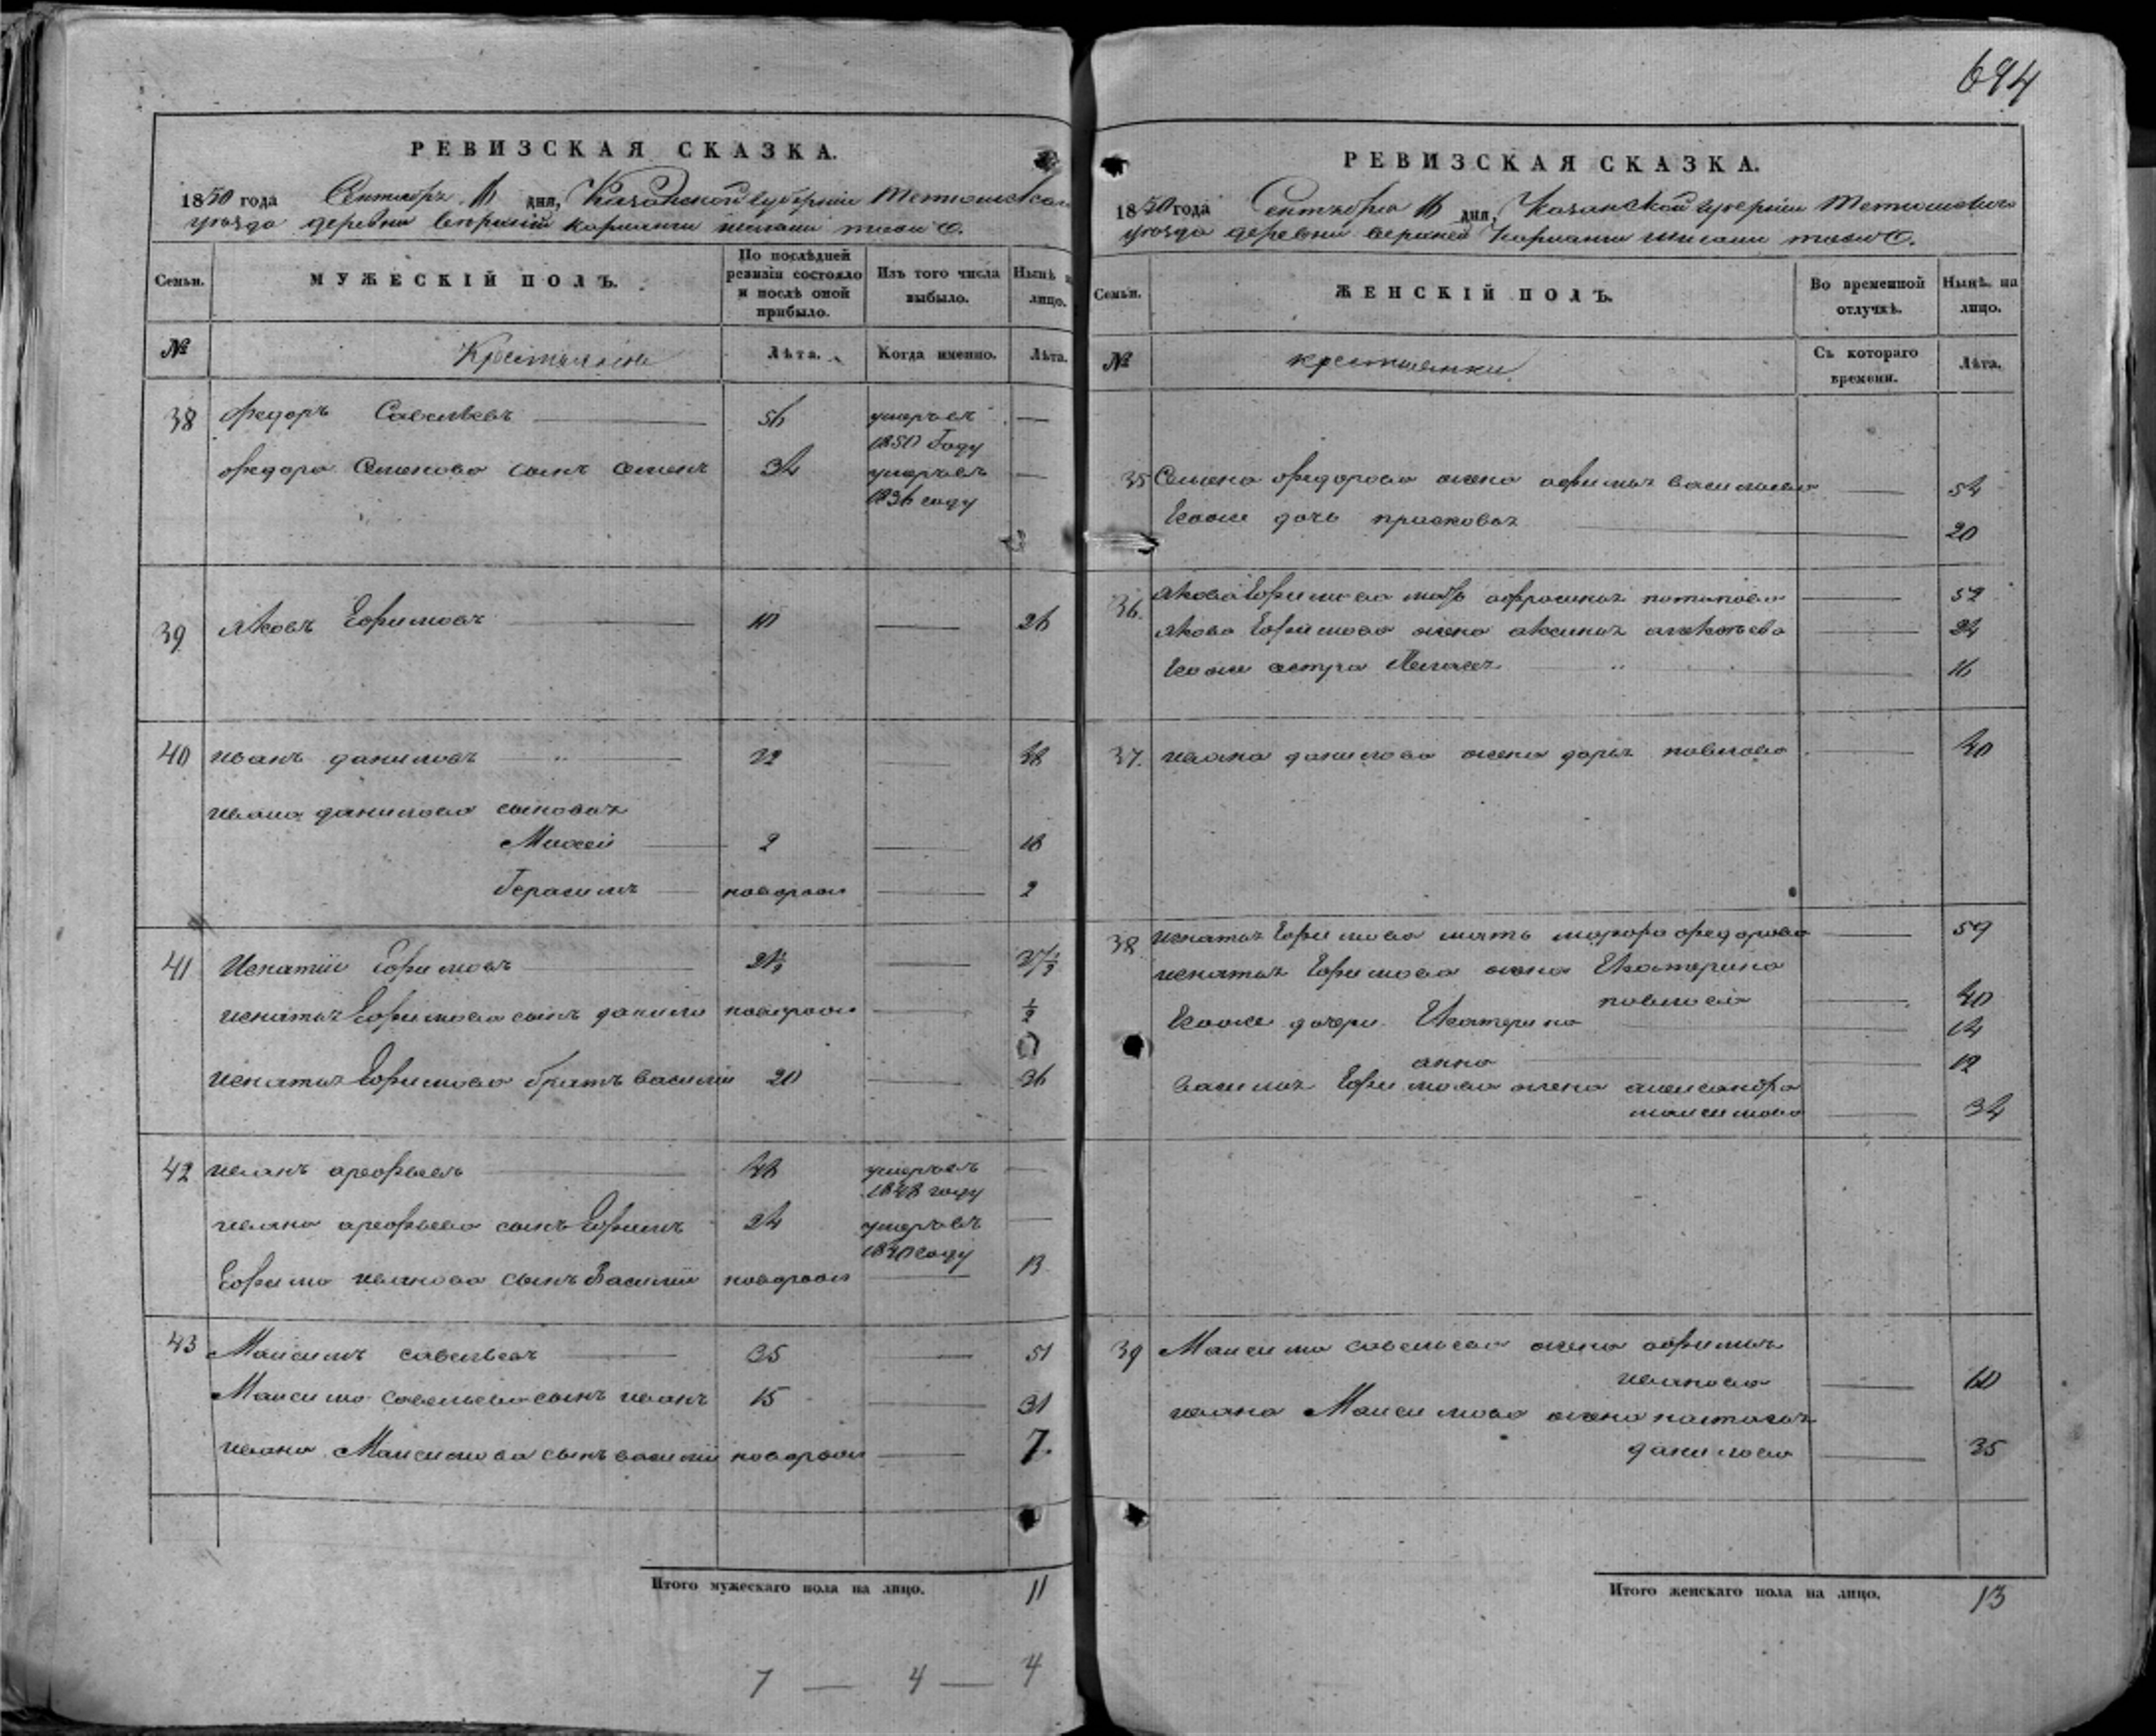 694
РЕВИЗСКАЯ СКАЗКА.
1850 года Сентября 11 дня, Казанской губернии Тетюшскаго
уезда деревни верхней
Семьи.
МУЖЕСКІЙ ПОЛЪ.
По послѣдней ревизіи состояло и послѣ оной прибыло.
Изъ того числа выбыло.
Нынѣ на лицо.
№
Крестьяне
Лѣта.
Когда именно.
Лѣта.
38 Федоръ Савельевъ 56 умеръ въ —
1850 Году
Федора сынъ Семенъ 34 умеръ въ —
1836 году
39 Яковъ Ефимовъ 10 — 26
40 иванъ даниловъ 22 — 38
ивана данилова сыновья
Моисей 2 — 18
Герасимъ новорож — 2
41 Игнатій Ефимовъ 21½ — 37½
игнатья Ефимова сынъ данило новорож — ½
игнатья Ефимова братъ василій 20 — 36
42 иванъ арефьевъ 48 умеръ въ —
1848 году
ивана арефьева сынъ Ефимъ 24 умеръ въ —
1840 году
Ефима иванова сынъ Василій новорож — 13
43 Максимъ савельевъ 35 — 51
Максима савельева сынъ иванъ 15 — 31
ивана Максимова сынъ василій новорож — 7.
Итого мужескаго пола на лицо. 11
7 — 4 — 4
РЕВИЗСКАЯ СКАЗКА.
1850 года Сентября 11 дня, Казанской губерніи Тетюшскаго
уезда деревни верхней
Семьи.
ЖЕНСКІЙ ПОЛЪ.
Во временной отлучкѣ.
Нынѣ на лицо.
№
крестьянки
Съ котораго времени.
Лѣта.
35 Семена Федорова жена афимья васильева — 54
Его же дочь прасковья — 20
36. Якова Ефимова мать афросинья потапова — 52
Якова Ефимова жена аксинья — 24
Его же сестра — 16
37. ивана данилова жена дарья павлова — 40
38 игнатья Ефимова мать федорова — 59
игнатья Ефимова жена Екатерина
павлова — 40
Его же дочери Екатерина — 14
анна — 12
василья Ефимова жена александра
максимова — 34
39 Максима савельева жена афимья
иванова — 60
ивана Максимова жена настасья
данилова — 35
Итого женскаго пола на лицо. 13